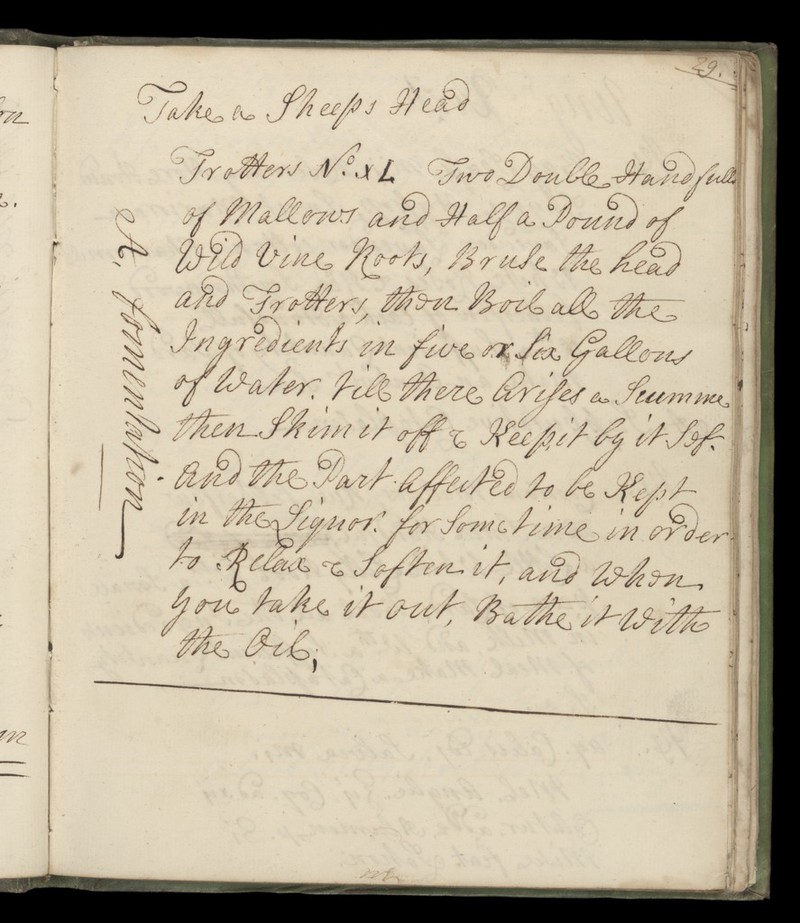 29.
Take a Sheeps Head
Trotters No. XL Two Double Handfulls
of Mallows and Half a Pound of
Wild Vine Roots, Bruse the head
and Trotters, then Boil all the
Ingredients in five or Six Gallons
of Water. till there Arises a Scumme
then Skim it off & Keep it by it Self.
And the Part Affected to be Kept
in the Liquor. for Some time in order
to Relax & Soften it, and When
you take it out, Bathe it With
the Oil;
A. Fomentation